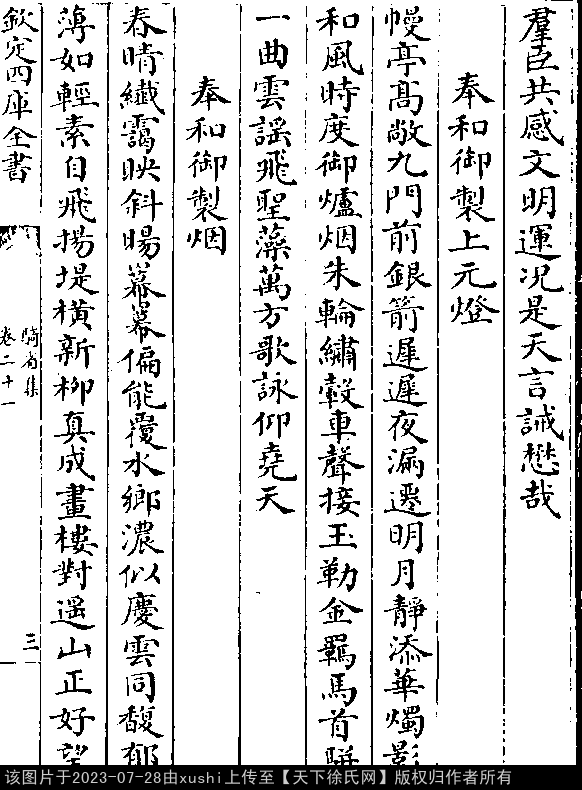 羣臣共感文明運况是天言誡懋哉
奉和御製上元燈
幔亭髙敞九門前銀箭遲遲夜漏遷明月静添華燭影
和風時度御爐烟朱輪繡轂車聲接玉勒金羈馬首駢
一曲雲謡飛聖藻萬方歌詠仰堯天
奉和御製烟
春晴纎靄映斜暘幕幕偏能覆水鄉濃似慶雲同馥郁
薄如輕素自飛揚堤横新栁真成畫樓對遥山正好望
欽定四庫全書
騎省集
卷二十一
三
该图片于2023-07-28由xushi上传至【天下徐氏网】版权归作者所有